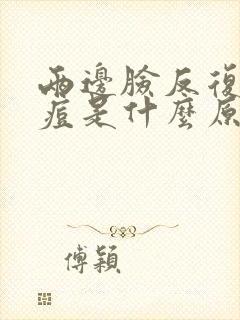 兩邊臉反復
痘是什麼原
傅穎